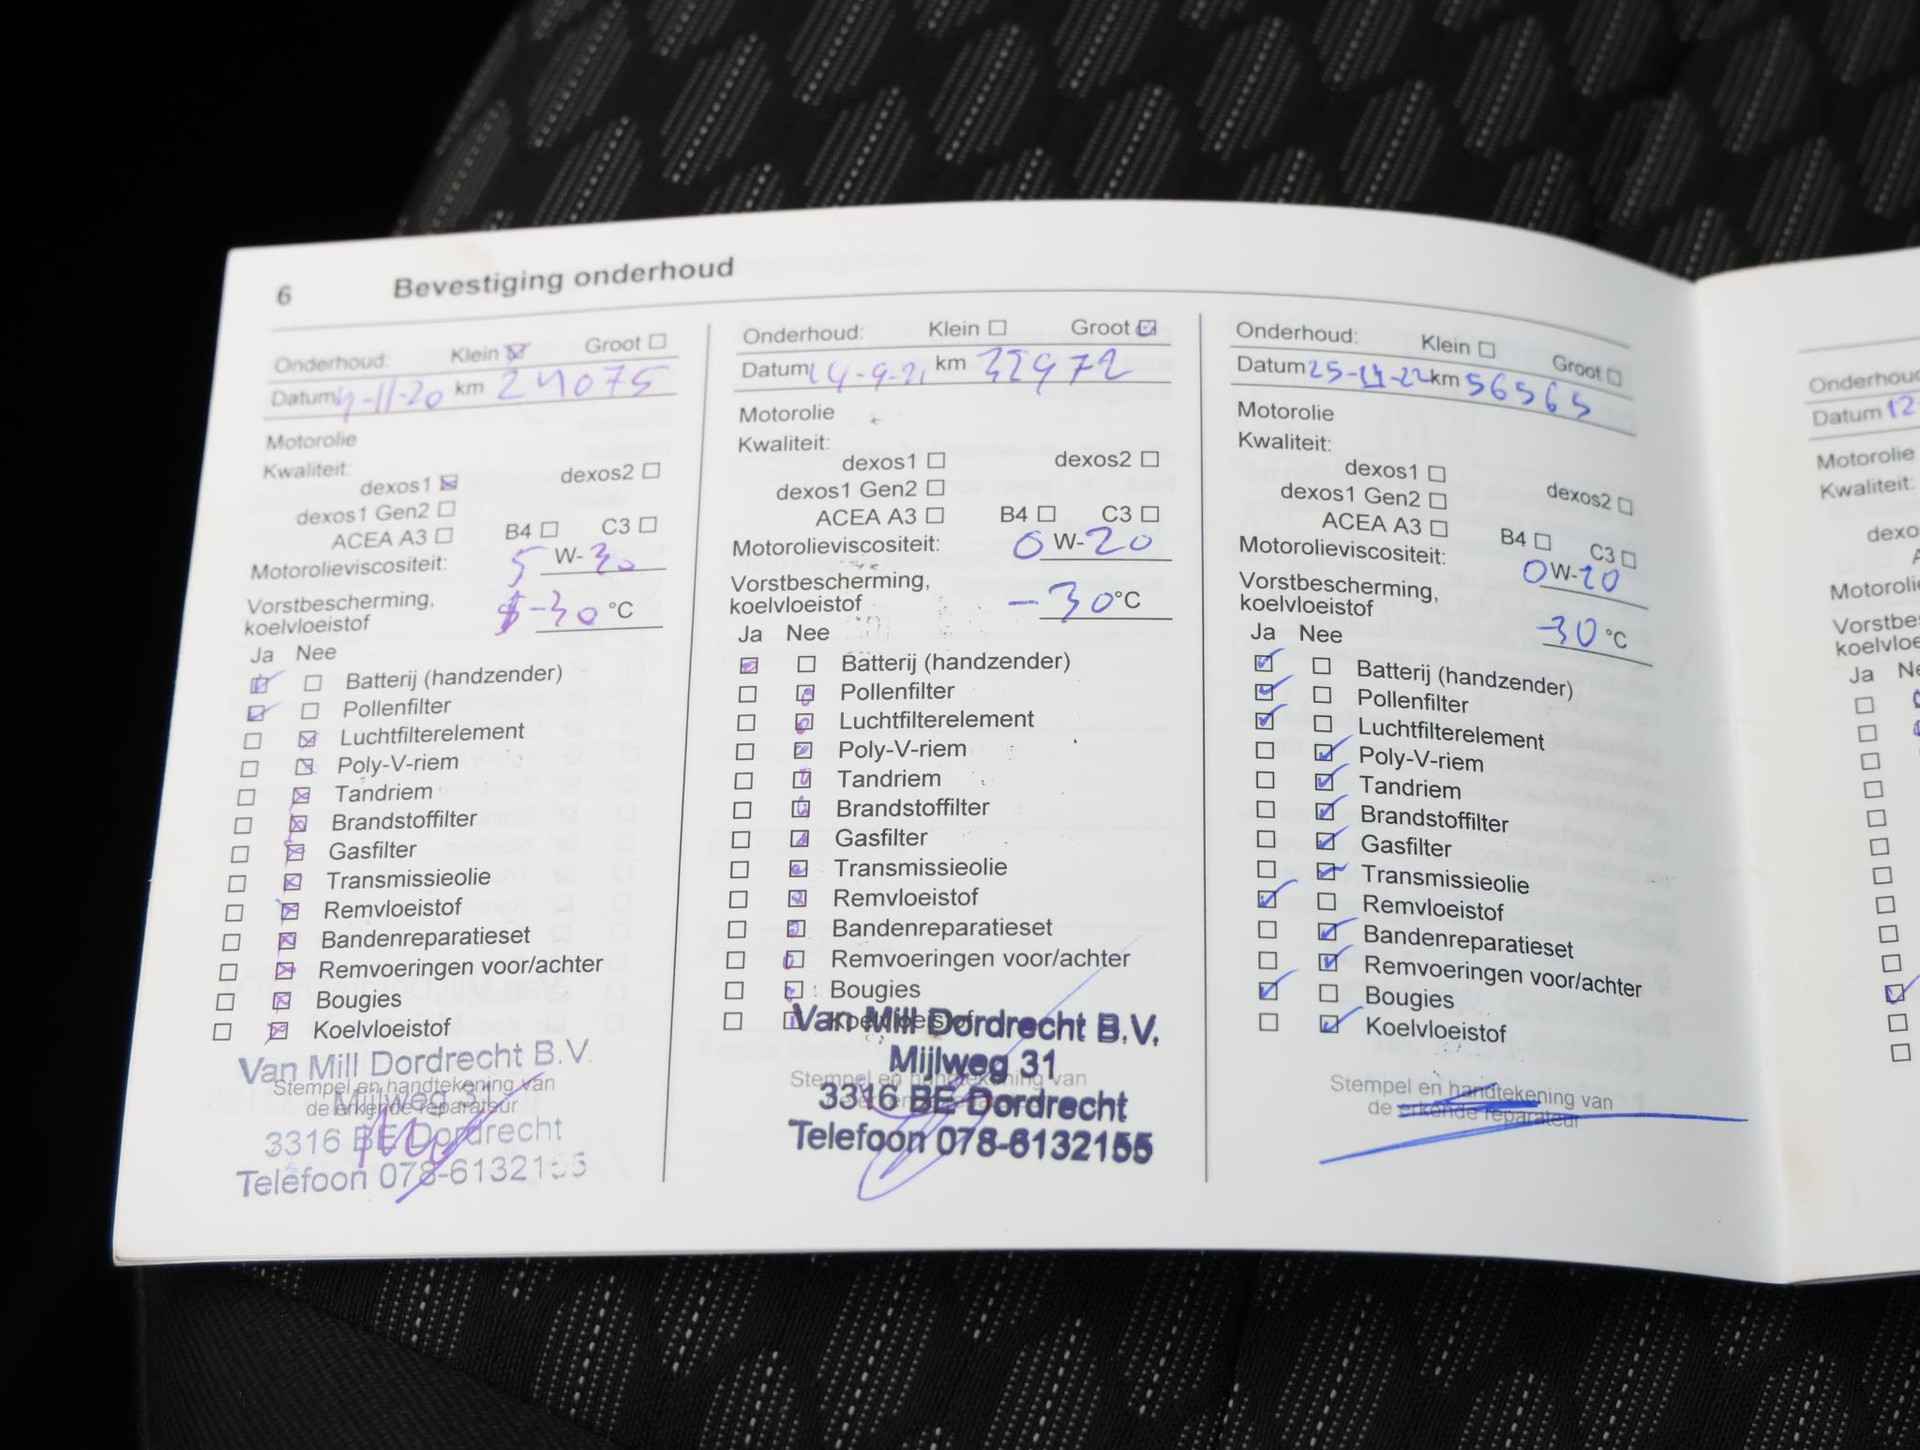 6 Bevestiging onderhoud
Onderhoud: Klein Groot
Datum 4-11-20 km 24075
Motorolie
Kwaliteit:
dexos1 dexos2
dexos1 Gen2
ACEA A3 B4 C3
Motorolieviscositeit: 5 W-30
Vorstbescherming,
koelvloeistof -30 °C
Ja Nee
Batterij (handzender)
Pollenfilter
Luchtfilterelement
Poly-V-riem
Tandriem
Brandstoffilter
Gasfilter
Transmissieolie
Remvloeistof
Bandenreparatieset
Remvoeringen voor/achter
Bougies
Koelvloeistof
Van Mill Dordrecht B.V.
Stempel en handtekening van
Mijlweg 31
de erkende reparateur
3316 BE Dordrecht
Telefoon 078-6132155
Onderhoud: Klein Groot
Datum 14-9-21 km 32972
Motorolie
Kwaliteit:
dexos1 dexos2
dexos1 Gen2
ACEA A3 B4 C3
Motorolieviscositeit: 0 W-20
Vorstbescherming,
koelvloeistof -30 °C
Ja Nee
Batterij (handzender)
Pollenfilter
Luchtfilterelement
Poly-V-riem
Tandriem
Brandstoffilter
Gasfilter
Transmissieolie
Remvloeistof
Bandenreparatieset
Remvoeringen voor/achter
Bougies
Koelvloeistof
Van Mill Dordrecht B.V.
Mijlweg 31
Stempel en handtekening van
3316 BE Dordrecht
Telefoon 078-6132155
Onderhoud: Klein Groot
Datum 25-11-22 km 56565
Motorolie
Kwaliteit:
dexos1 dexos2
dexos1 Gen2
ACEA A3 B4 C3
Motorolieviscositeit: 0W-20
Vorstbescherming,
koelvloeistof -30 °C
Ja Nee
Batterij (handzender)
Pollenfilter
Luchtfilterelement
Poly-V-riem
Tandriem
Brandstoffilter
Gasfilter
Transmissieolie
Remvloeistof
Bandenreparatieset
Remvoeringen voor/achter
Bougies
Koelvloeistof
Stempel en handtekening van
de erkende reparateur
Onderhoud
Datum 12
Motorolie
Kwaliteit:
dexo
Motorolie
Vorstbe
koelvloe
Ja Ne